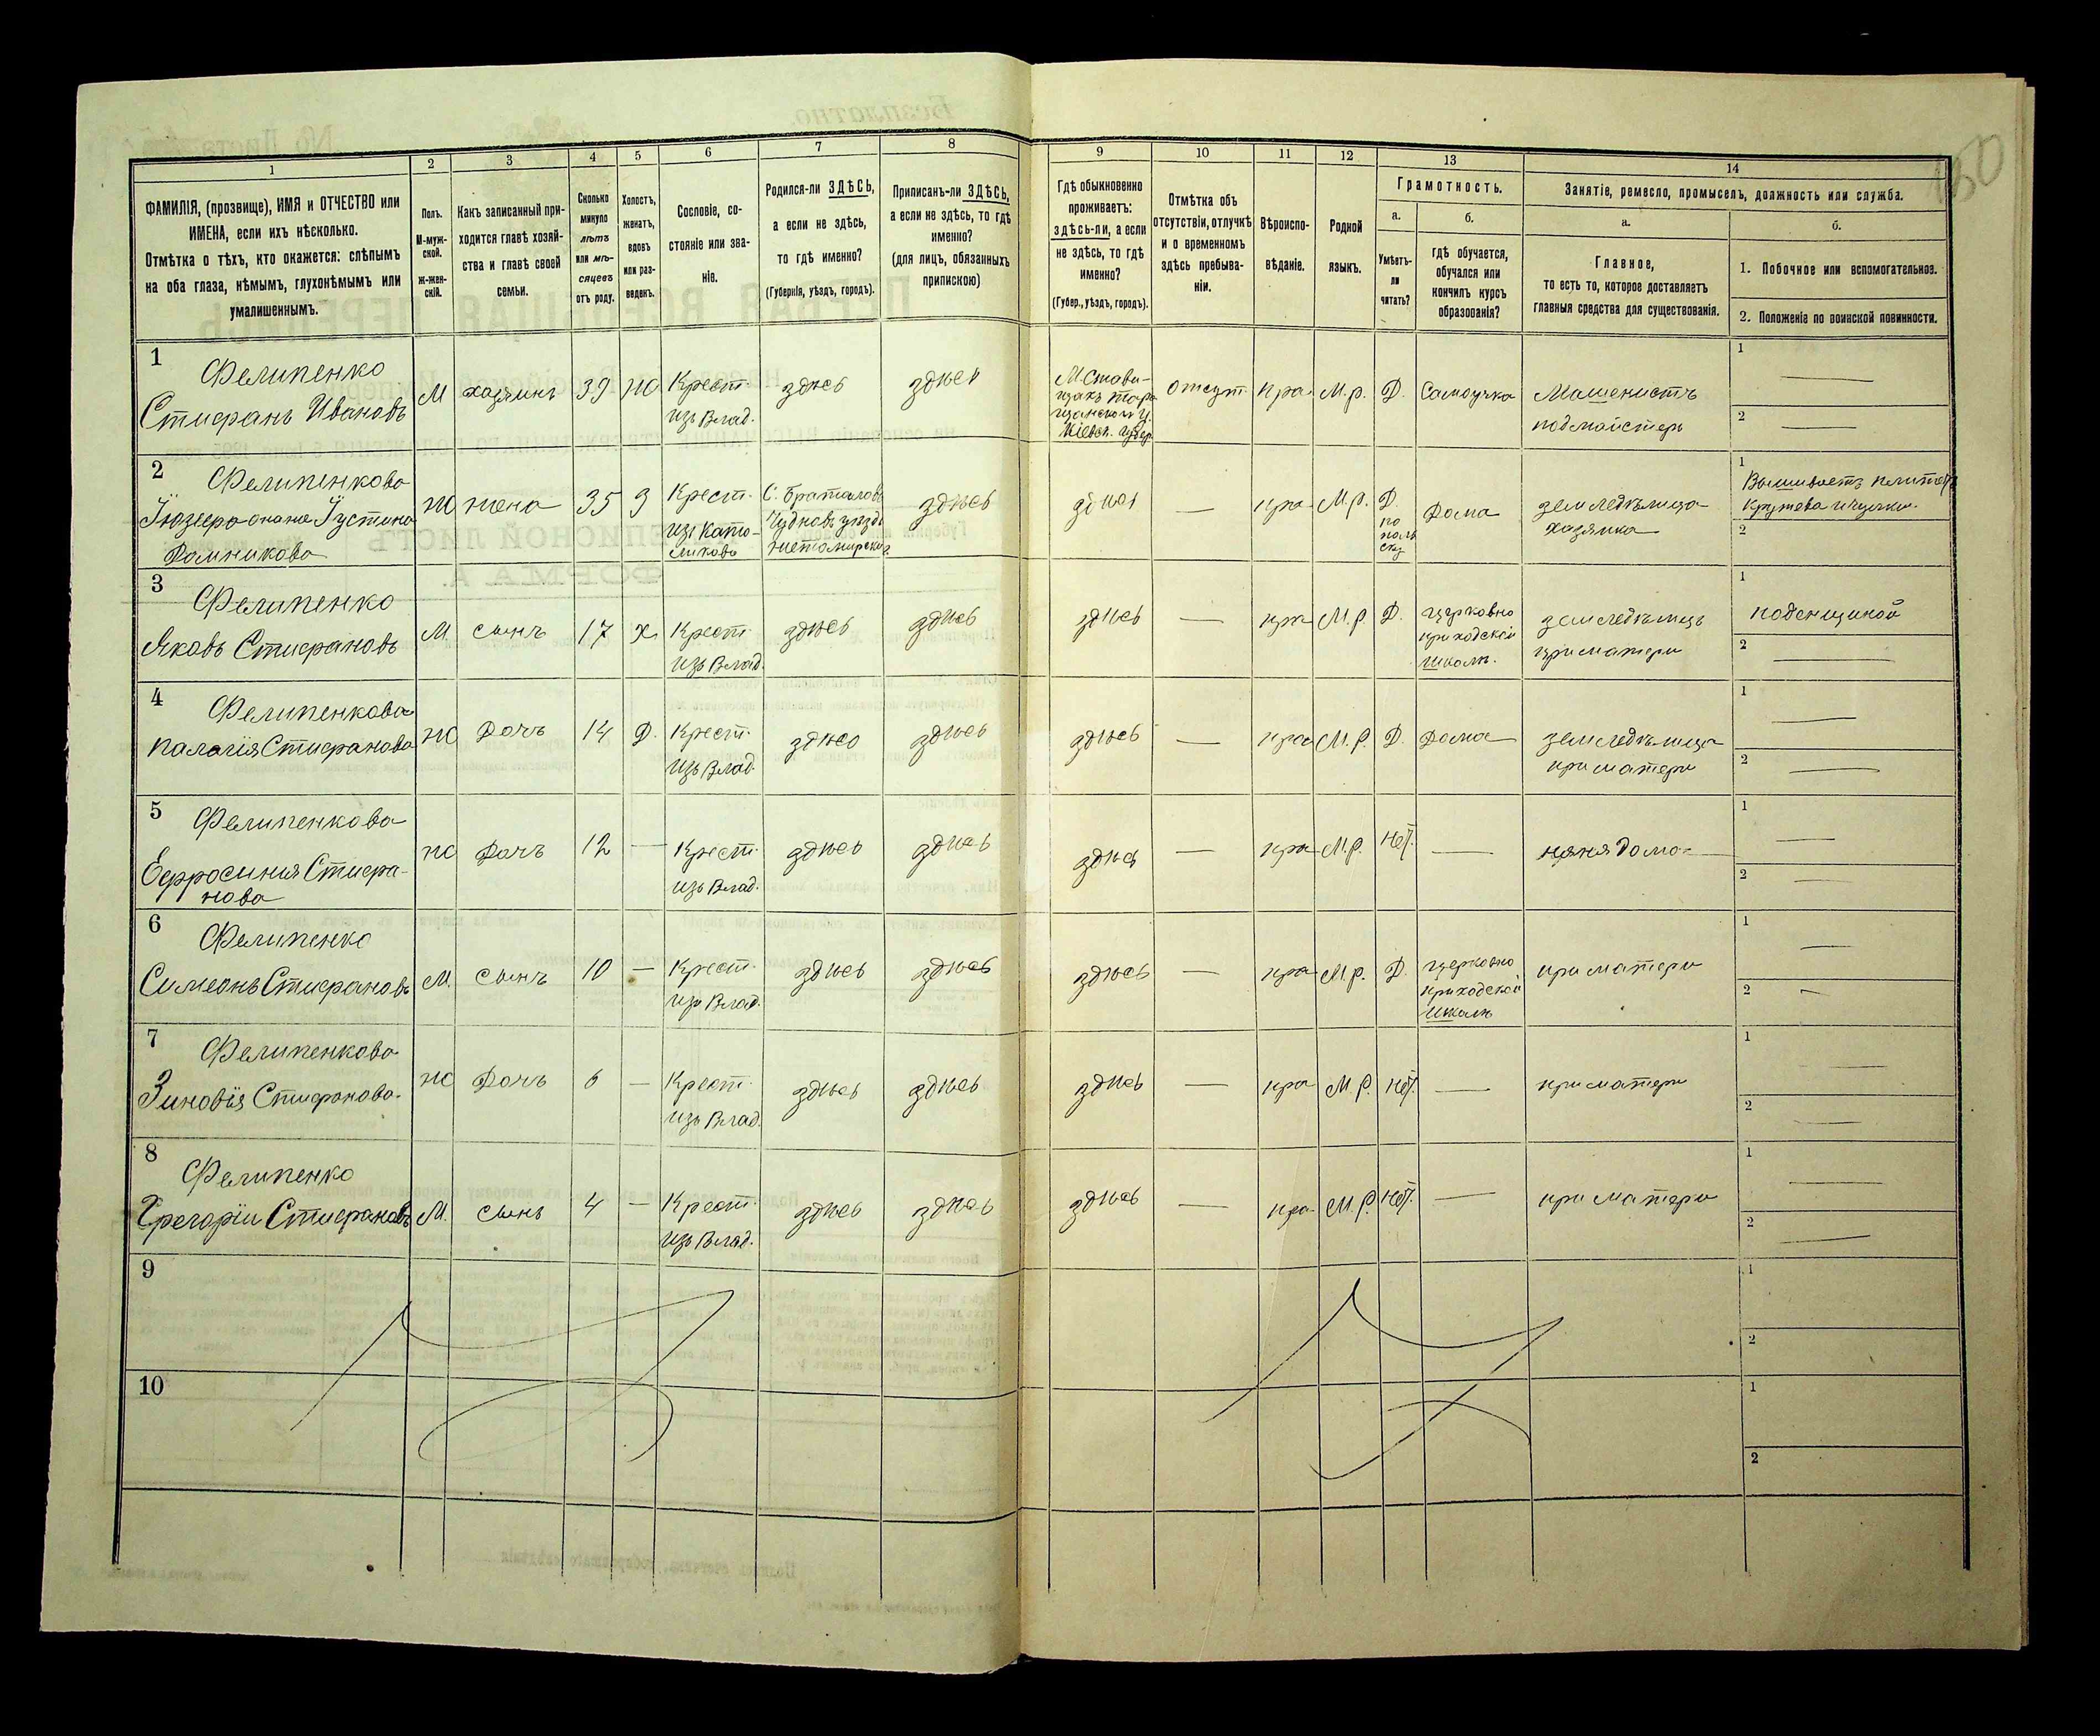 150
1 2 3 4 5 6 7 8 9 10 11 12 13 14
ФАМИЛІЯ, (прозвище), ИМЯ и ОТЧЕСТВО или
ИМЕНА, если ихъ нѣсколько.
Отмѣтка о тѣхъ, кто окажется: слѣпымъ
на оба глаза, нѣмымъ, глухонѣмымъ или
умалишеннымъ.
Полъ.
М-муж-
ской.
ж-жен-
скій.
Какъ записанный при-
ходится главѣ хозяй-
ства и главѣ своей
семьи.
Сколько
минуло
лѣтъ
или мѣ-
сяцевъ
отъ роду.
Холостъ,
женатъ,
вдовъ
или раз-
веденъ.
Сословіе, со-
стояніе или зва-
ніе.
Родился-ли ЗДѢСЬ,
а если не здѣсь,
то гдѣ именно?
(Губернія, уѣздъ, городъ).
Приписанъ-ли ЗДѢСЬ,
а если не здѣсь, то гдѣ
именно?
(для лицъ, обязанныхъ
припискою)
Гдѣ обыкновенно
проживаетъ:
здѣсь-ли, а если
не здѣсь, то гдѣ
именно?
(Губер., уѣздъ, городъ).
Отмѣтка объ
отсутствіи, отлучкѣ
и о временномъ
здѣсь пребыва-
ніи.
Вѣроиспо-
вѣданіе.
Родной
языкъ.
Грамотность.
а.
Умѣетъ-
ли
читать?
б.
гдѣ обучается,
обучался или
кончилъ курсъ
образованія?
Занятіе, ремесло, промыселъ, должность или служба.
а.
Главное,
то есть то, которое доставляетъ
главныя средства для существованія.
б.
1. Побочное или вспомогательное.
2. Положеніе по воинской повинности.
1
Фелипенко
Стифанъ Ивановъ
М хазяинъ 39 Ж
Крест.
изъ Влад.
здѣсь здѣсь
М. Стави-
щахъ Тара
щанской у.
Кіевск. губер.
отсут. пра. М. р. Д. Самоучка
Машенистъ
подмайстеръ
1
2
2
Фелипенкова
Юзефа онаже Іустина
Доминикова
Ж жена 35 З
Крест.
изъ Като-
ликовъ
С. Браталовъ
Чудновъ уѣзд.
Житомирской
здѣсь здѣсь пра М. р.
Д.
по
поль
ску
Дома
земледѣлица
хазяйка
1
Вышиваетъ
кружева
2
3
Фелипенко
Яковъ Стифановъ
М. сынъ 17 х.
Крест.
изъ Влад.
здѣсь здѣсь здѣсь пра М. р. Д.
церковно
приходской
школѣ.
земледѣлецъ
при матери
1
поденщиной
2
4
Фелипенкова
Палагія Стифанова
Ж Дочъ 14 Д.
Крест.
изъ Влад.
здѣсь здѣсь здѣсь пра М. р. Д. Дома
земледѣлица
при матери
1
2
5
Фелипенкова
Ефросинія Стифа-
нова
Ж Дочъ 12
Крест.
изъ Влад.
здѣсь здѣсь здѣсь пра М. р. Нѣт. няня дома
1
2
6
Фелипенко
Симеонъ Стифановъ
М. сынъ 10
Крест.
изъ Влад.
здѣсь здѣсь здѣсь пра М. р. Д.
церковно
приходской
школѣ
при матери
1
2
7
Фелипенкова
Зиновія Стифанова.
Ж Дочъ 6
Крест.
изъ Влад.
здѣсь здѣсь здѣсь пра М. р. Нѣт. при матери
1
2
8
Фелипенко
Грегорій Стифановъ
М. сынъ 4
Крест.
изъ Влад.
здѣсь здѣсь здѣсь пра М. р. Нѣт. при матери
1
2
9
1
2
10
1
2